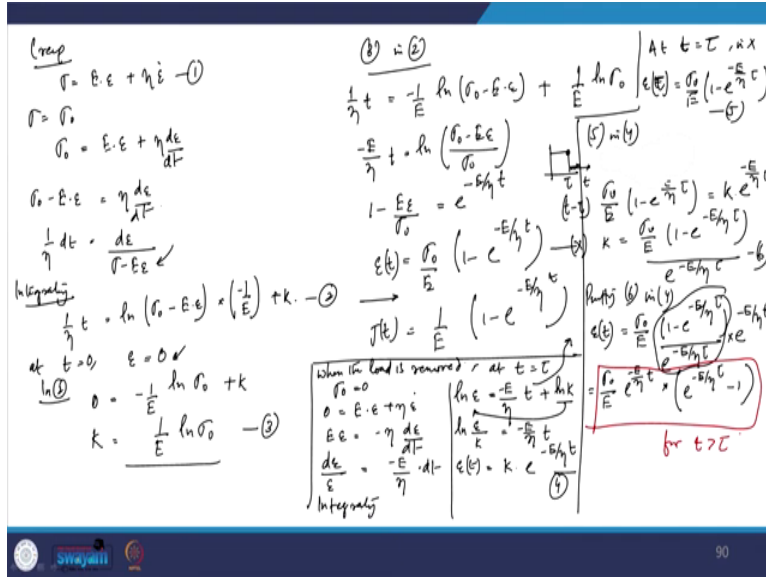 Creep
σ = E.ε + ηε̇ —①
σ = σ₀
σ₀ = E.ε + η dε/dt
σ₀ - E.ε = η dε/dt
1/η dt = dε/(σ-Eε)
Integrating
1/η t = ln (σ₀ - E.ε) × (-1/E) + k. —②
at t=0, ε = 0
In ②
0 = -1/E ln σ₀ + k
K = 1/E ln σ₀ —③
③ in ②
1/η t = -1/E ln (σ₀-E.ε) + 1/E ln σ₀
-E/η t = ln ((σ₀-Eε)/σ₀)
1 - Eε/σ₀ = e^(-E/η t)
ε(t) = σ₀/E (1 - e^(-E/η t)) —(x)
J(t) = 1/E (1 - e^(-E/η t))
When the load is removed, at t = τ
σ₀ = 0
0 = E.ε + ηε̇
Eε = -η dε/dt
dε/ε = -E/η . dt
Integrating
ln ε = -E/η t + ln k
ln ε/k = -E/η t
ε(t) = k. e^(-E/η t)
④
At t = τ, in x
ε(τ) = σ₀/E (1 - e^(-E/η τ))
—(5)
(5) in (4)
τ t
(t-τ)
σ₀/E (1 - e^(-E/η τ)) = k e^(-E/η τ)
k = σ₀/E (1 - e^(-E/η τ))/e^(-E/η τ) —6
Putting (6) in (4)
ε(t) = σ₀/E (1 - e^(-E/η τ))/e^(-E/η τ) × e^(-E/η t)
= σ₀/E e^(-E/η t) × (e^(-E/η τ) - 1)
for t > τ
swayam
90